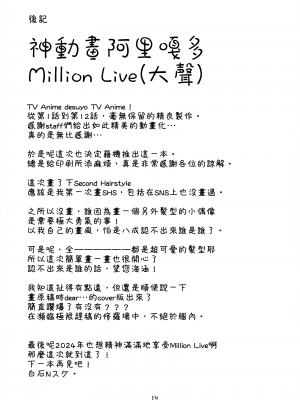 後記
神動畫阿里嘎多
Million Live(大聲)
TV Anime desuyo TV Anime！
從第1話到第12話，毫無保留的精良製作。
感謝staff們給出如此精美的動畫化…
真的是無比感謝…
於是呢這次也決定藉機推出這一本。
總是給印刷所添麻煩，真是非常感謝各位的諒解。
這次畫了下Second Hairstyle
應該是我第一次畫SHS，包括在SNS上也沒畫過。
之所以沒畫，誰因為畫一個另外髮型的小偶像
是需要極大勇氣的事！
以我自己的畫風，怕是八成認不出來誰是誰了。
可是呢，全—————都是超可愛的髮型耶
所以這次簡單畫一畫也很開心了
認不出來是誰的話，望您海涵！
我知道扯得有點遠，但還是順便說一下
畫原稿時dear…的cover版出來了
簡直讚爆了有沒有？？？
在瀕臨極限趕稿的修羅場中，不絕於腦內。
最後呢2024年也想精神滿滿地享受Million Live啊
那麼這次就到這了！
下一本再見吧！
白石Nスケ。
19